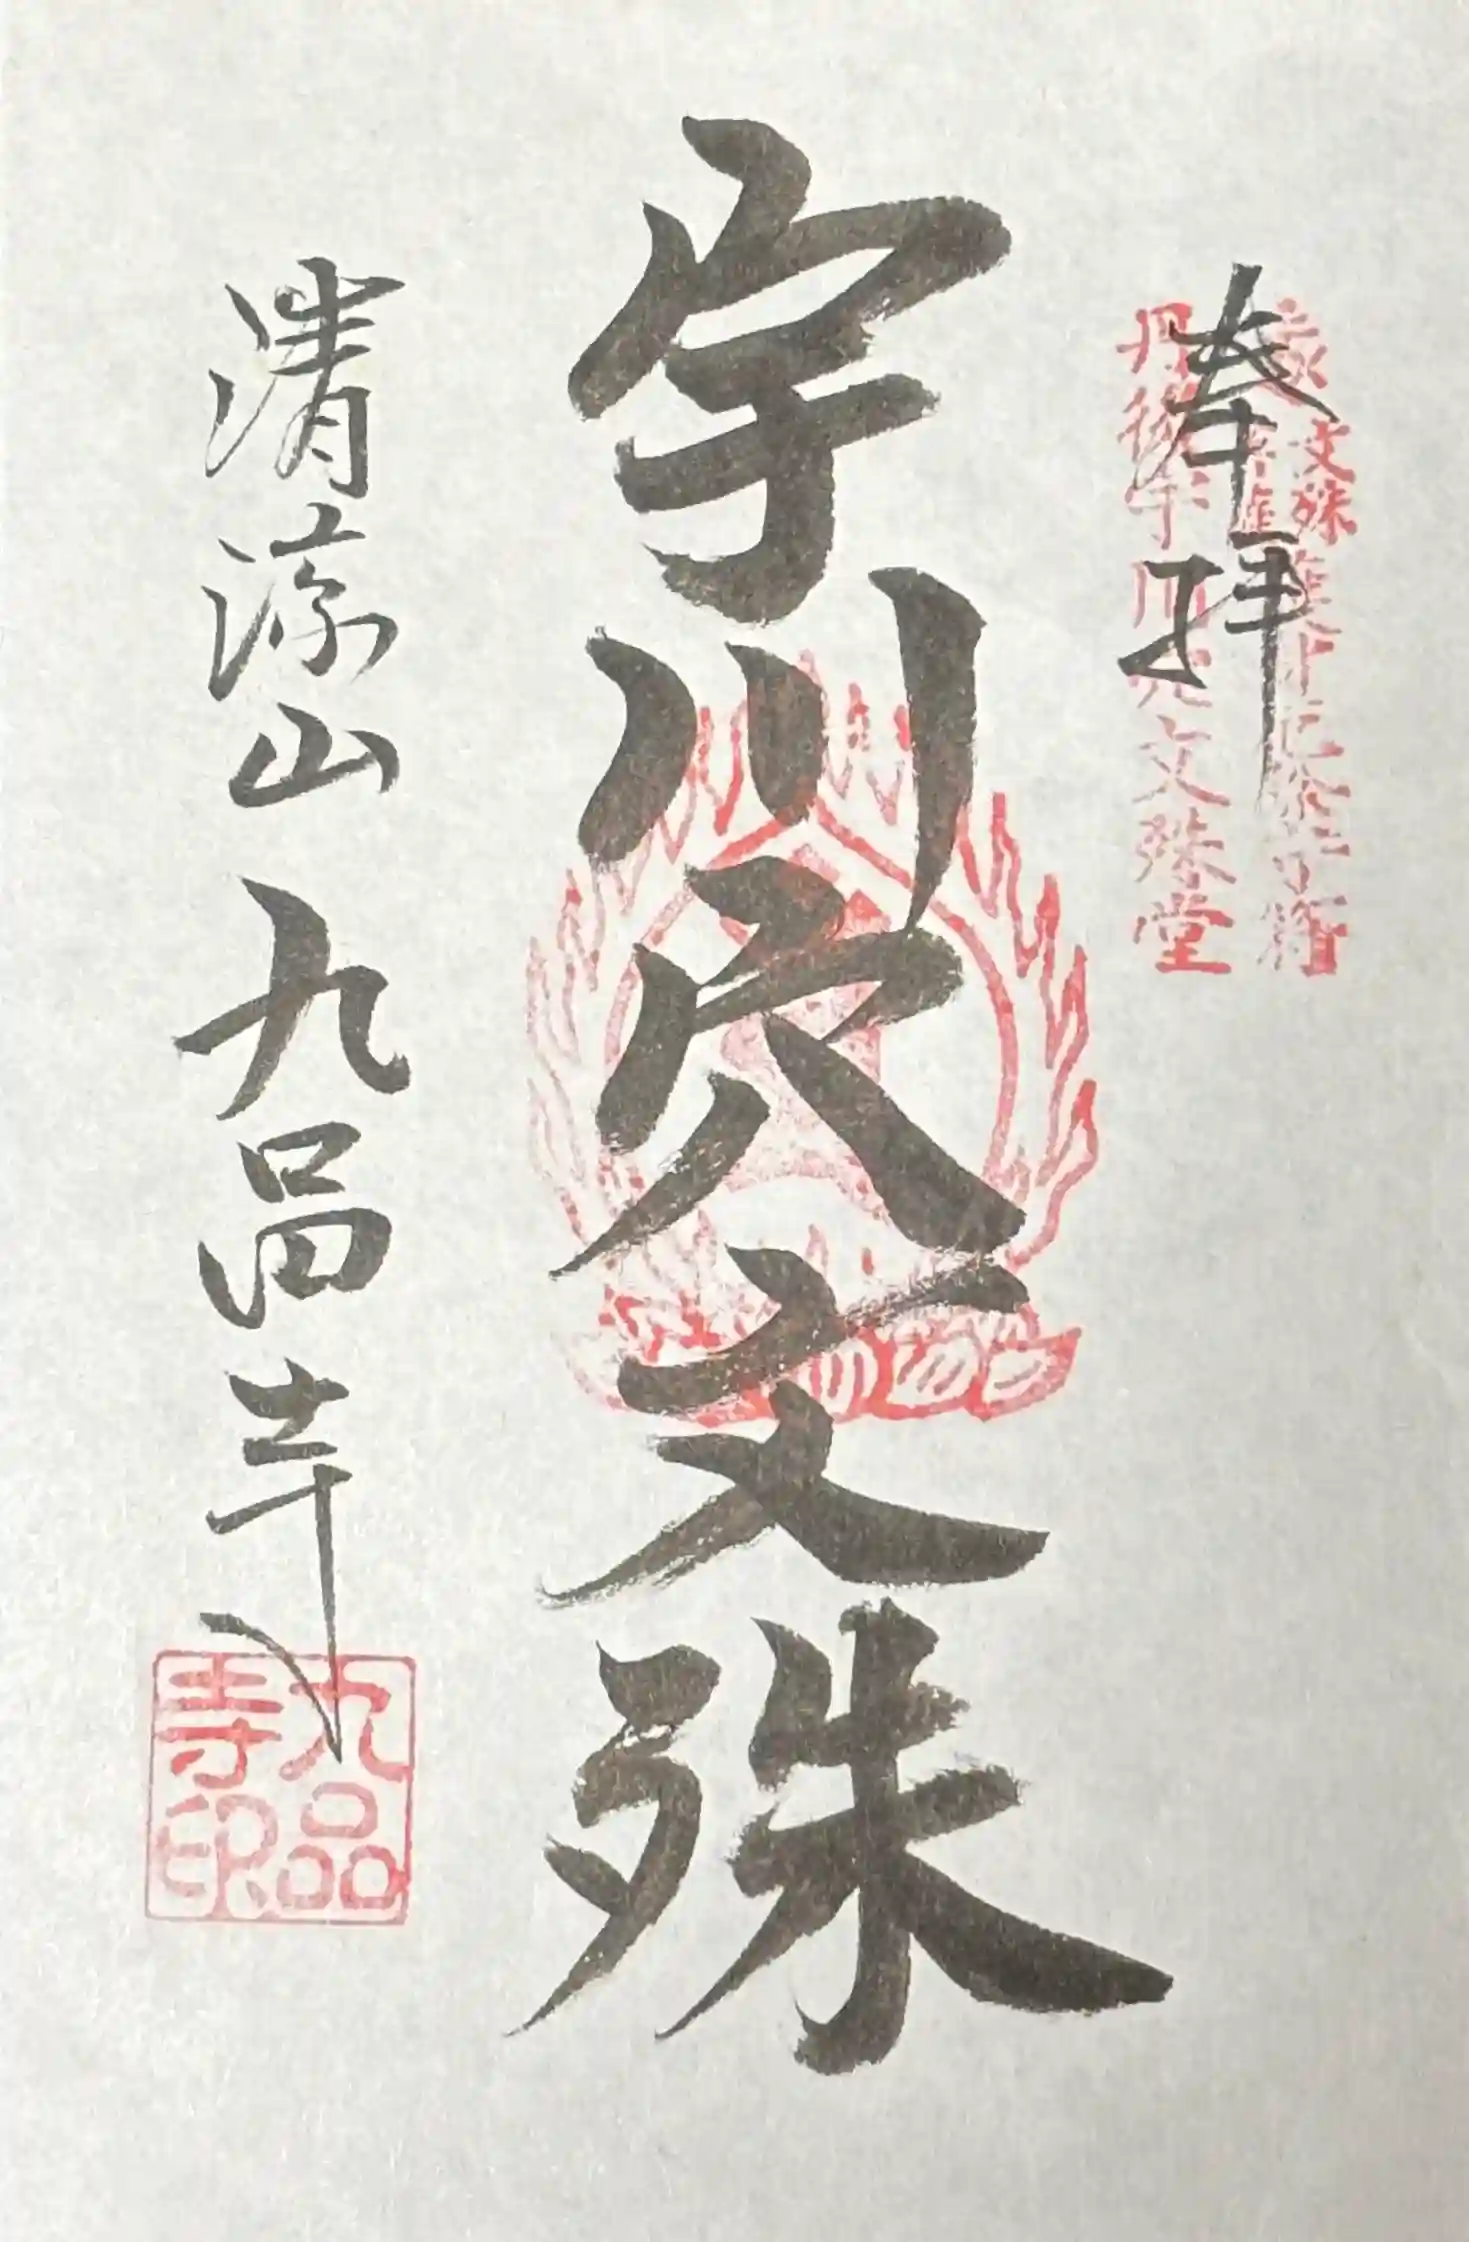 奉拝
丹後宇川穴文殊堂
宇川穴文殊
清涼山 九品寺
九品
寺印